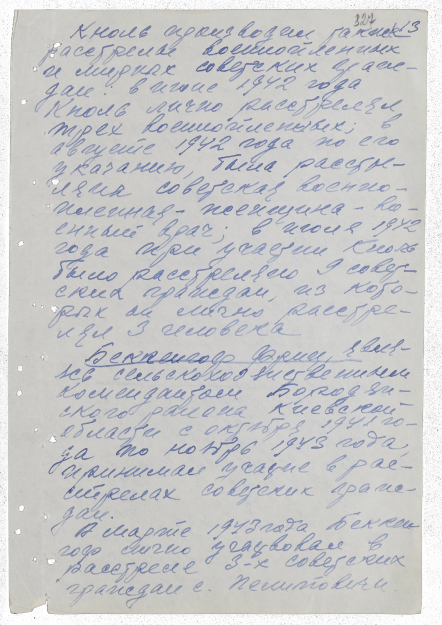 327 113
Кноль производил также
расстрелы военнопленных
и мирных советских граж-
дан: в июне 1942 года
Кноль лично расстрелял
трех военнопленных; в
августе 1942 года по его
указанию, была расстре-
ляна советская военно-
пленная - женщина - во-
енный врач; в июля 1942
года при участии Кноль
было расстреляно 9 совет-
ских граждан, из кото-
рых он лично расстре-
лял 3 человека
Беккенгоф Фриц, явля-
ясь сельскохозяйственным
комендантом Бородян-
ского района Киевской
области с октября 1941 го-
да по ноябрь 1943 года,
принимал участие в рас-
стрелах советских граж-
дан.
В марте 1943 года Беккен
гоф лично учавствовал в
расстреле 3-х советских
граждан с.